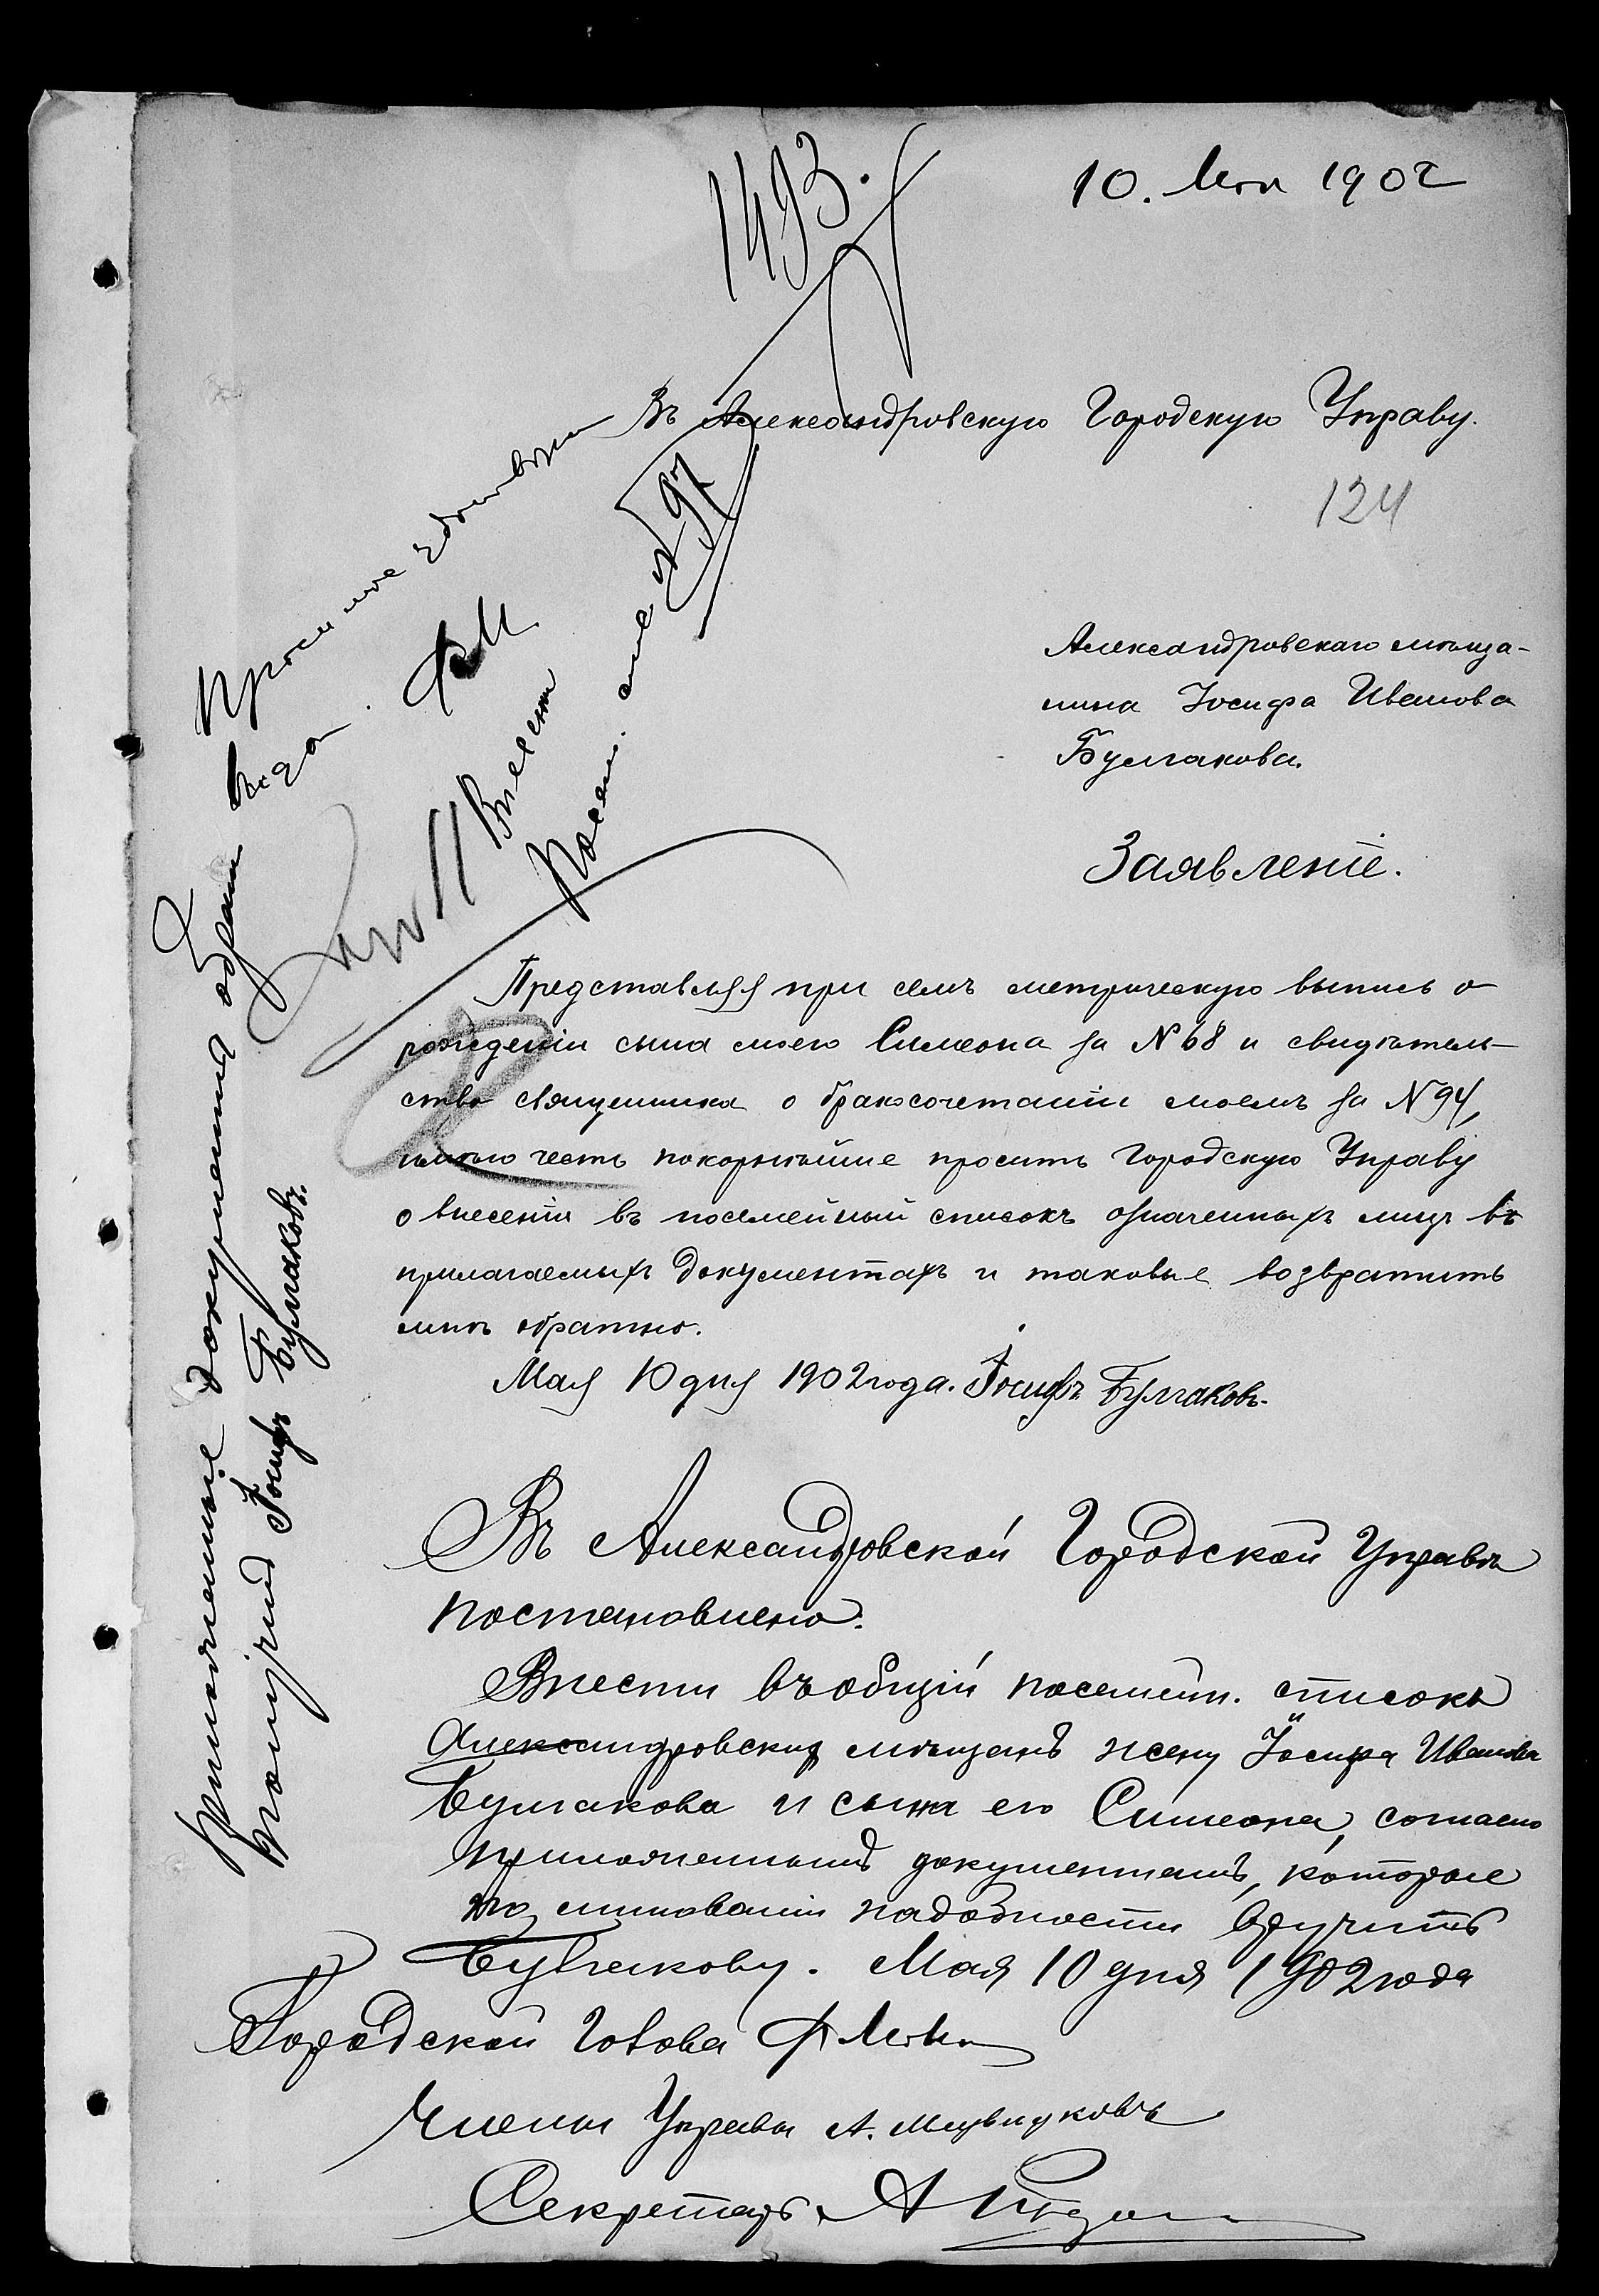 10. Мая 1902
1493.
Въ Александровскую Городскую Управу.
124
Александровскаго мѣща-
нина Іосифа Иванова
Булгакова.
Заявленіе.
Представляя при семъ метрическую выпись о
рожденіи сына моего Симеона за № 68 и свидѣтель-
ство священника о бракосочетаніи моемъ за № 94,
имѣю честь покорнѣйше просить Городскую Управу
о внесеніи въ посемейный списокъ означенныхъ лицъ въ
прилагаемыхъ документахъ и таковые возвратить
мнѣ обратно.
Мая 10 дня 1902 года. Іосифъ Булгаковъ.
Въ Александровской Городской Управѣ
постановлено:
Внести въ общій посемейн. списокъ
Александровскихъ мѣщанъ жену Іосифа Иванова
Булгакова и сына его Симеона, согласно
приложеннымъ документамъ, которые
по минованіи надобности вручить
Булгакову. Мая 10 дня 1902 года
Городской Голова
Члены Управы А.
Секретарь А
Просимое удовлетво
Внесен
Посем. спис № 97
Приложенные документы обратно
получилъ Іосифъ Булгаковъ.